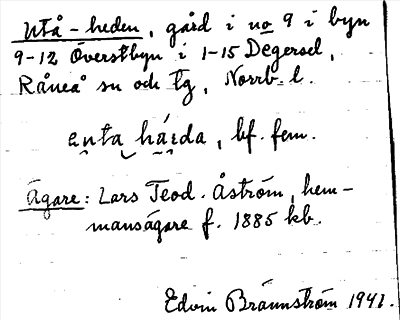 Utå-heden, gård i no 9 i byn
9-12 Överstbyn i 1-15 Degersel,
Råneå sn och tg, Norrb. l.
enta häida, bf. fem.
Ägare: Lars Teod. Åström, hem-
mansägare f. 1885 kb.
Edvin Brännström 1941.